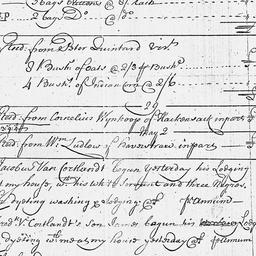 3 bags Buttons @ 8/ Each
2 bags Do @ Do
Recd. from Peter Quintard vizt
9 Bush. of oats @ 2/3 p Bush.
4 Bush. of Indian Corn @ 2/6
29
Recd. from Cornelius Wynkoop of Hackensack in part
May 2
Recd. from Wm. Ludlow of Haverstraw in part
Jacobus Van Cortlandt begun yesterday his Lodging
at my house, with his white Servant and three Negros.
dyeting washing & lodging @ p annum
Fredk. V. Cortlandt's son James begun his Lodg
dyeting with me at my house yesterday @ p annum